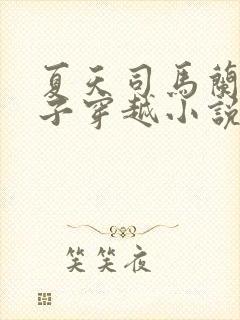 夏天司馬蘭
子穿越小說
笑笑夜